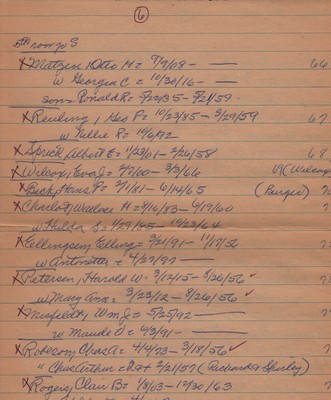 6
5th row go S
X Matzen, Otto H = 9/9/08 - —— 66
w Georgia C = 10/30/16 - ——
son Ronald R = 5/22/35 - 5/21/59
X Reuling, Geo P = 10/23/85 - 3/29/59 67
w Nellie R = 10/6/92
X Sprick, Albert E = 1/23/01 - 2/26/58 68
X Wilcox, Eva J = 2/7/60 - 3/3/66
X Beck, Hans P = 2/1/81 - 6/14/65 (Burger)
X Charlot, Wallace H = 9/16/83 - 6/19/60
w Hulda S = 1/29/85 - 10/23/64
X Ellingsen, Elling = 3/21/91 - 11/17/56
w Antonette = 4/27/97 - ——
X Petersen, Harold W - 3/12/15 - 8/26/56 ✓
w Mary Ann = 3/23/12 - 8/26/56 ✓
X Neufeldt, Wm J = 5/25/92 - ——
w Maude O = 4/3/91 - ——
X Robeson, Chas A = 4/4/73 - 3/18/56 ✓
" Chas Arthur = 2/21/57 (Richard & Shirley)
X Rogers, Clair B = 1/8/63 - 12/30/63